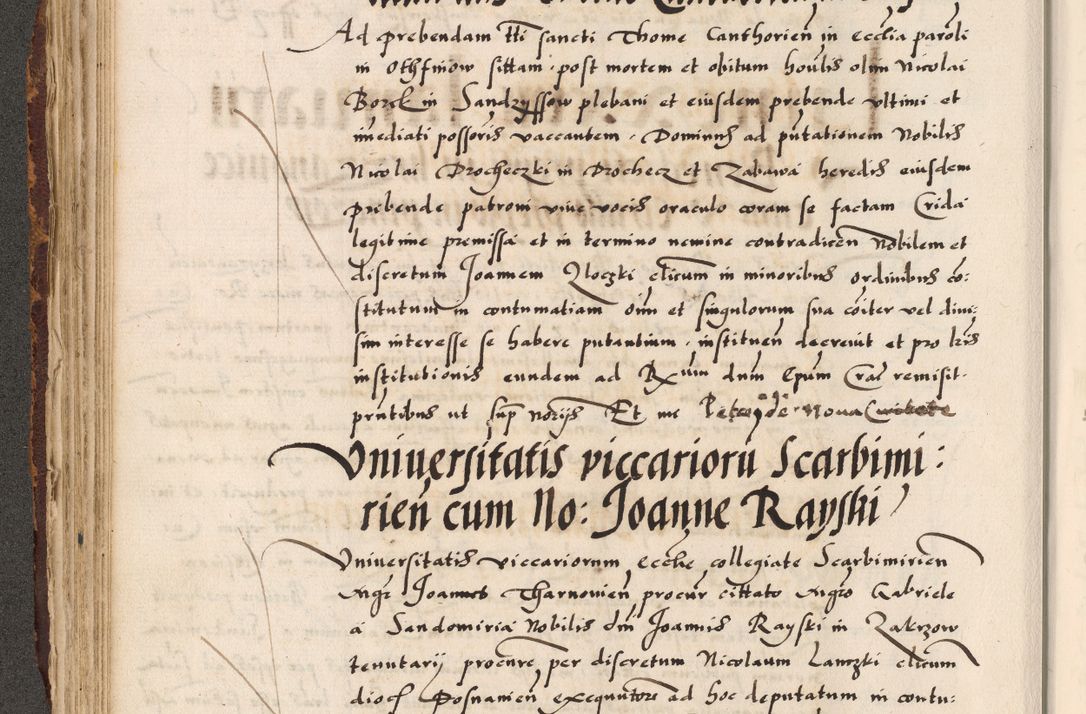 Ad prebendam tti sancti Thome Canthorien in ecclia paroli
in Othfinow sittam · post mortem et obitum houlis olim Nicolai
Borek in Sandzyssow plebani et eiusdem prebende vltimi et
imediati possoris vaccautem · Dominus ad pntationem Nobilis
Nicolai Drocheczki in Drochecz et Zabawa heredis eiusdem
prebende patroni viue vocis oraculo coram se factam Crida
legitime premissa et in termino nemine contradicen Nobilem et
discretum Joannem Zloczki clicum in minoribus ordinibus co-
stitutum in contumatiam oim et singulorum sua coiter vel diui-
sim interesse se habere putantium · instituen decreuit et pro lris
institutionis eundem ad Rxum dnm Epum Crac remisit ·
pntibus ut sup norijs Et me Petro de Noua Ciuitate
Vniuersitatis viccarioru Scarbimi:
rien cum No: Joanne Rayski
Vniuersitatis viccariorum Ecclie collegiate Scarbimirien
Mgr Joannes Tharnouien procur cittato Mgro Gabriele
a Sandomiria Nobilis dni Joannis Rayski in Zakrzow
tenutarij procure, per discretum Nicolaum Lanczki clicum
dioc Posnanien exequutore ad hoc deputatum in contu: